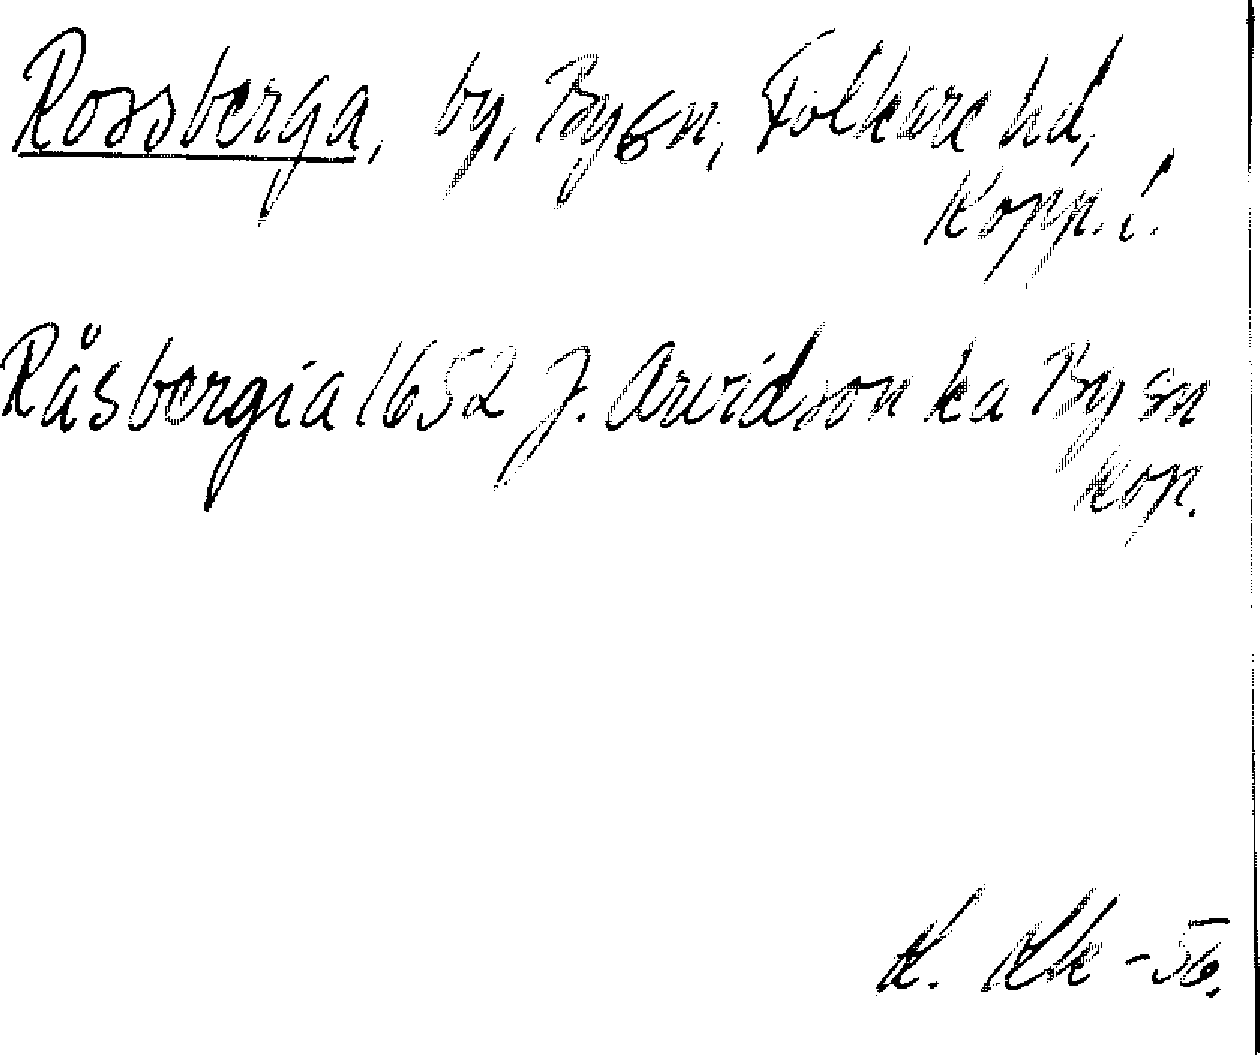 Rossberga, by, By sn, Folkare hd,
Kopp. l.
Råsbergia 1652 J. Arvidson ka By sn
kop.
K. -56.